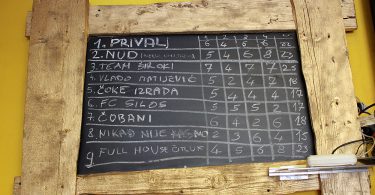 1. PRIVALJ 6 4 6 6 22
2. NUD 5 4 6 8
3. TEAM ŠIROKI 7 4 7 7 25
5 2 4 7
5. ČOKE IZRADA 5 4 4 4 17
6. FC SILOS 5 5 5 2 17
7. ČOBANI 6 4 2 6 18
8. NIKAD NIJE KASNO 2 3 6 4 15
9 FULL HOUSE 4 5 6 8 23